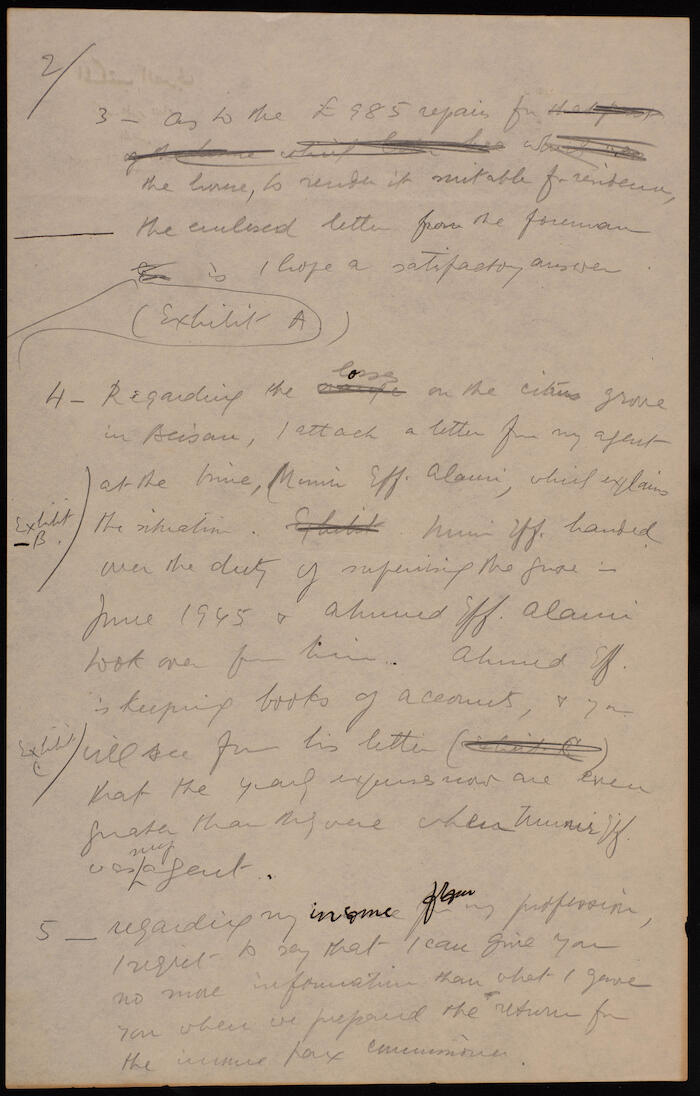 2/
3 - As to the £985 repairs for that part
of the house which
the house, to render it suitable for residence,
the enclosed letter from the foreman
is I hope a satisfactory answer.
(Exhibit A)
4 - Regarding the losses on the citrus grove
in Beisan, I attach a letter from my agent
at the time, (Munir Eff. Alami, which explains
Exhibit B.
the situation. Exhibit Munir Eff. handed
over the duty of supervising the grove in
June 1945 & Ahmed Eff. Alami
took over from him. Ahmed Eff.
is keeping books of accounts, & you
Exhibit C
will see from his letter (Exhibit C)
that the yearly expenses now are even
greater than they were when Munir Eff.
was my agent.
5 - regarding my income from my profession,
I regret to say that I can give you
no more information than what I gave
you when we prepared the return for
the income tax commissioner.